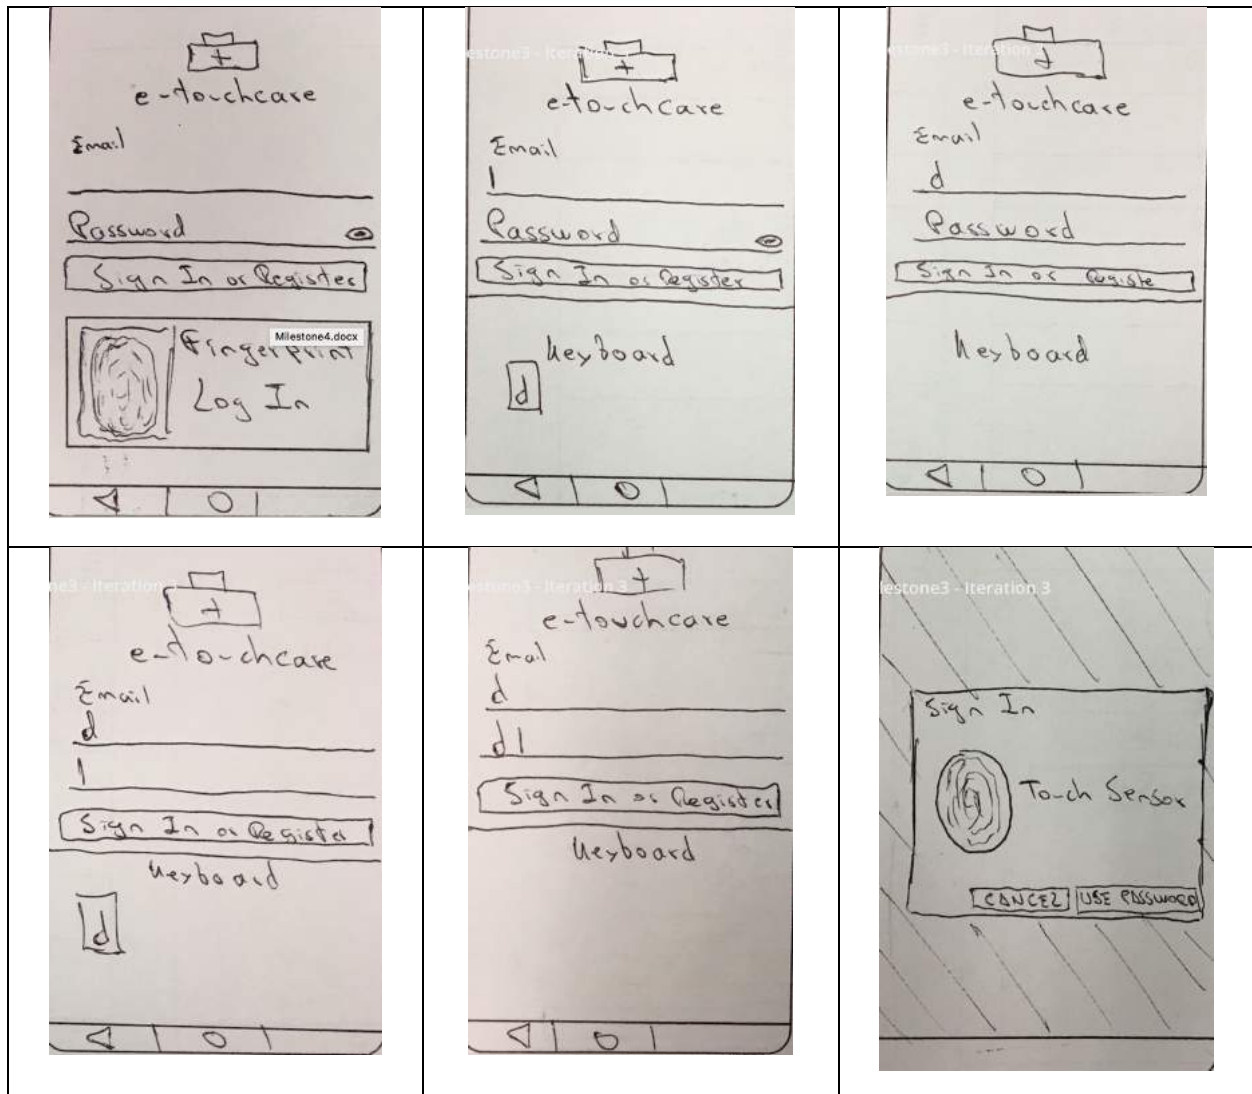 +
e-touchcare
Email
Password
Sign In or Register
Milestone4.docx
Fingerprint
Log In
estone3 - Iteration
+
e-touchcare
Email
|
Password
Sign In or Register
Keyboard
d
estone3 - Iteration
+
e-touchcare
Email
d
Password
Sign In or Registe
Keyboard
ne3 - Iteration 3
+
e-touchcare
Email
d
|
Sign In or Register
Keyboard
d
estone3 - Iteration 3
+
e-touchcare
Email
d
d|
Sign In or Register
Keyboard
lestone3 - Iteration 3
Sign In
Touch Sensor
CANCEL
USE PASSWORD